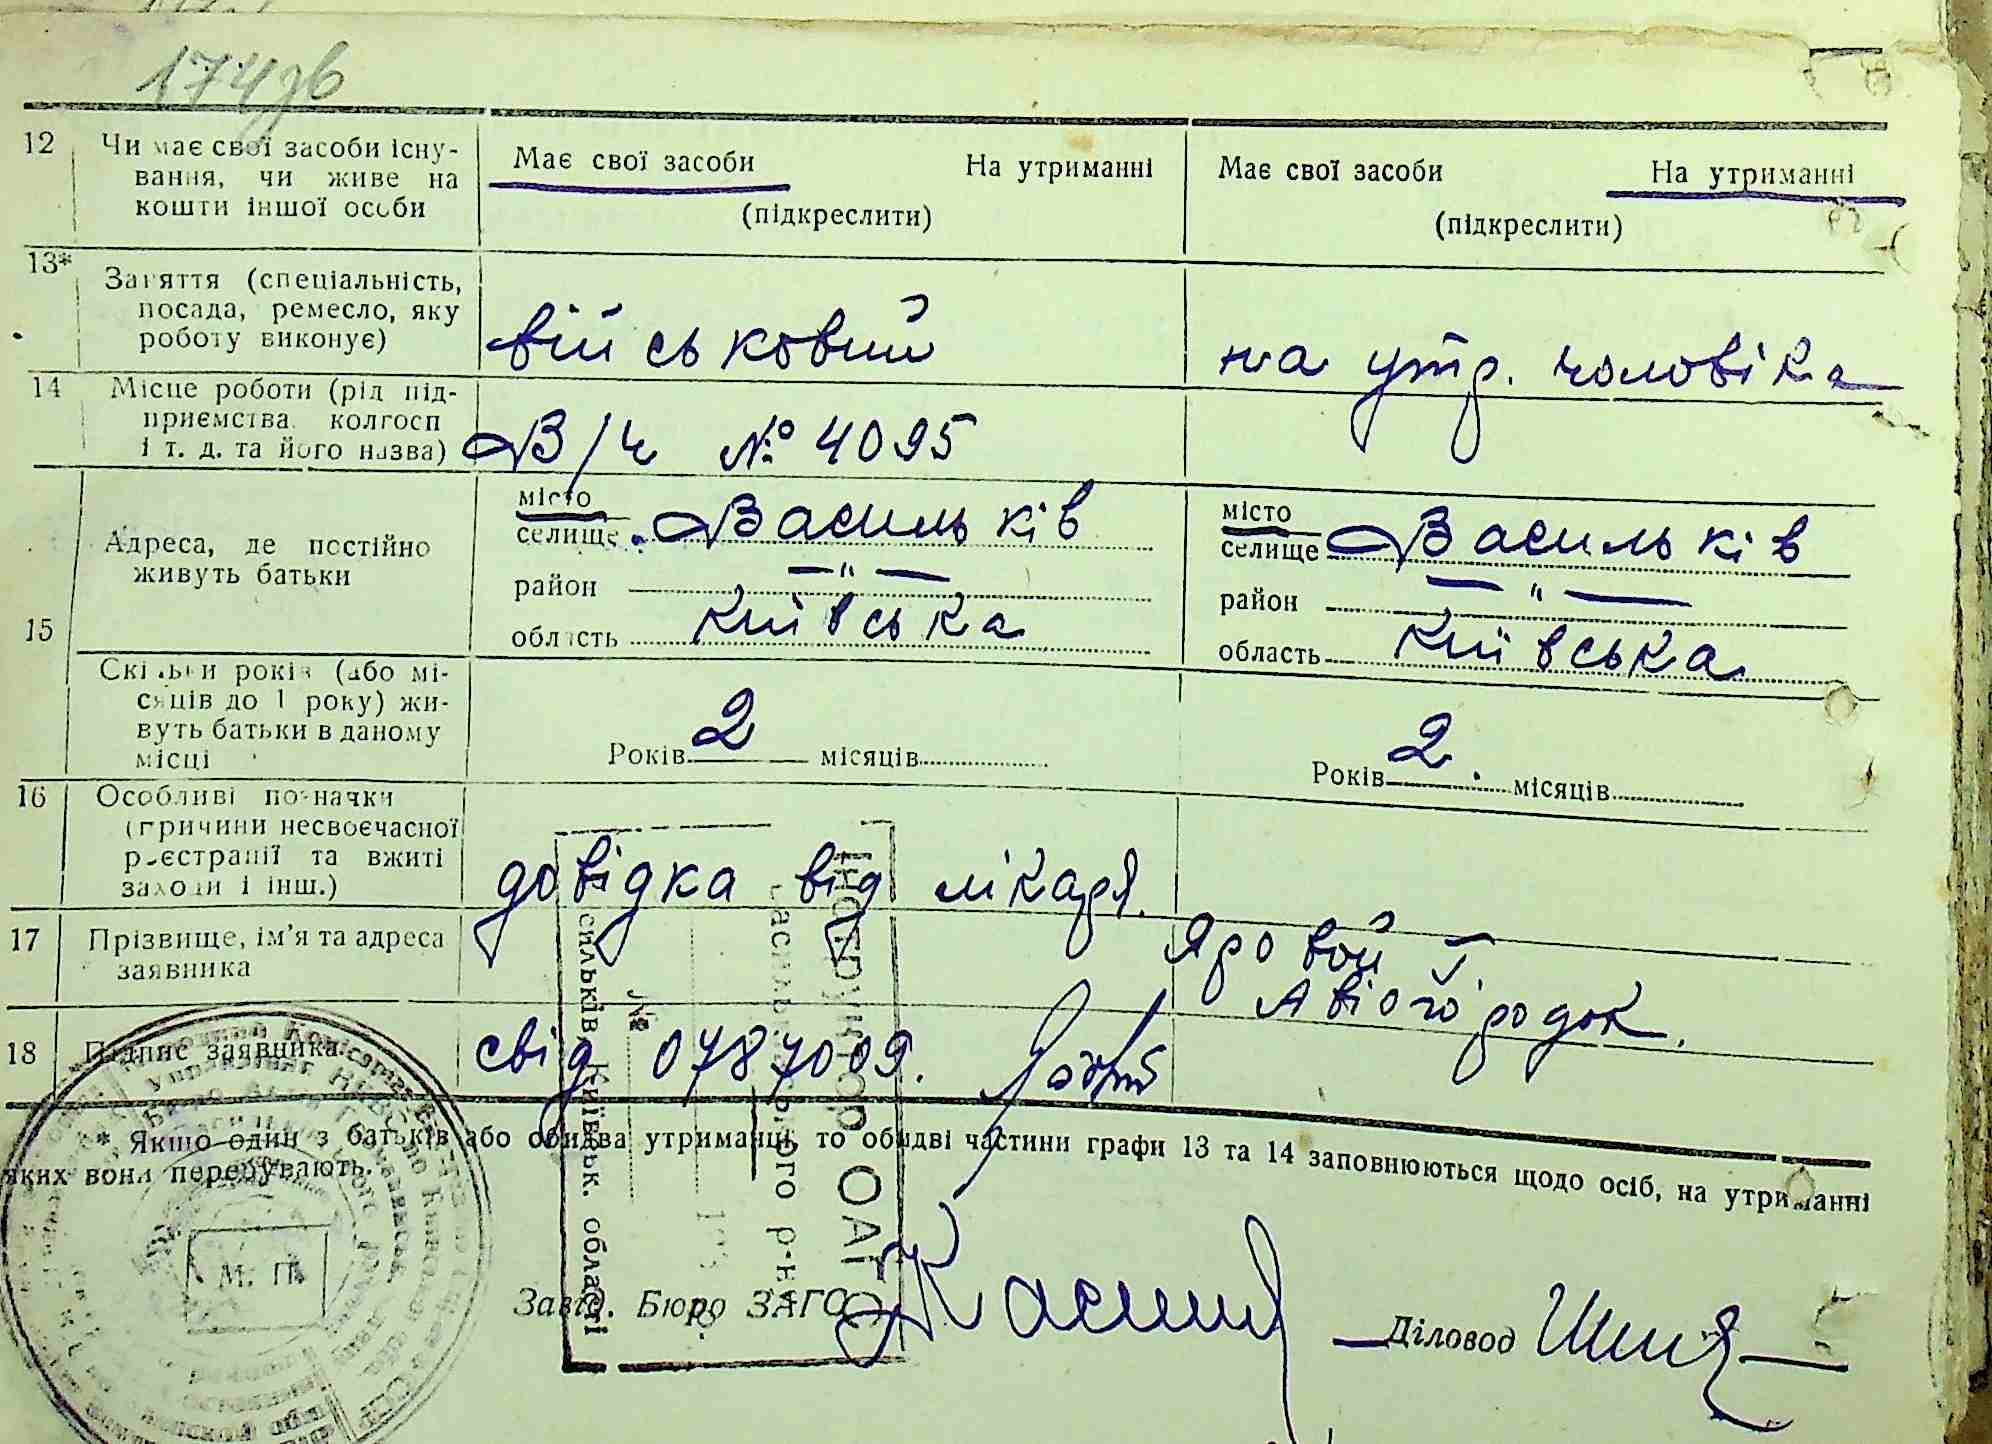 174зв
12 Чи має свої засоби існу-
вання, чи живе на
кошти іншої особи
Має свої засоби На утриманні
(підкреслити)
Має свої засоби На утриманні
(підкреслити)
13* Заняття (спеціальність,
посада, ремесло, яку
роботу виконує)
військовий
на утр. чоловіка
14 Місце роботи (рід під-
приємства, колгосп
і т. д. та його назва)
В/ч № 4095
15
Адреса, де постійно
живуть батьки
місто
селище Васильків
район —"—
область Київська
місто
селище Васильків
район —"—
область Київська
Скільки років (або мі-
сяців до 1 року) жи-
вуть батьки в даному
місці
Років 2 місяців
Років 2. місяців
16 Особливі позначки
(причини несвоєчасної
реєстрації та вжиті
заходи і інш.)
довідка від лікаря.
17 Прізвище, ім'я та адреса
заявника
Яровой Г.
Авіогородок.
18 Підпис заявника
свід 0787009.
* Якщо один з батьків або обидва утриманці, то обидві частини графи 13 та 14 заповнюються щодо осіб, на утриманні
яких вони перебувають.
М. П.
Завід. Бюро ЗАГС
Діловод
Інструктор ОАГС
Васильківського р-н
№
193
сильків, Київськ. області